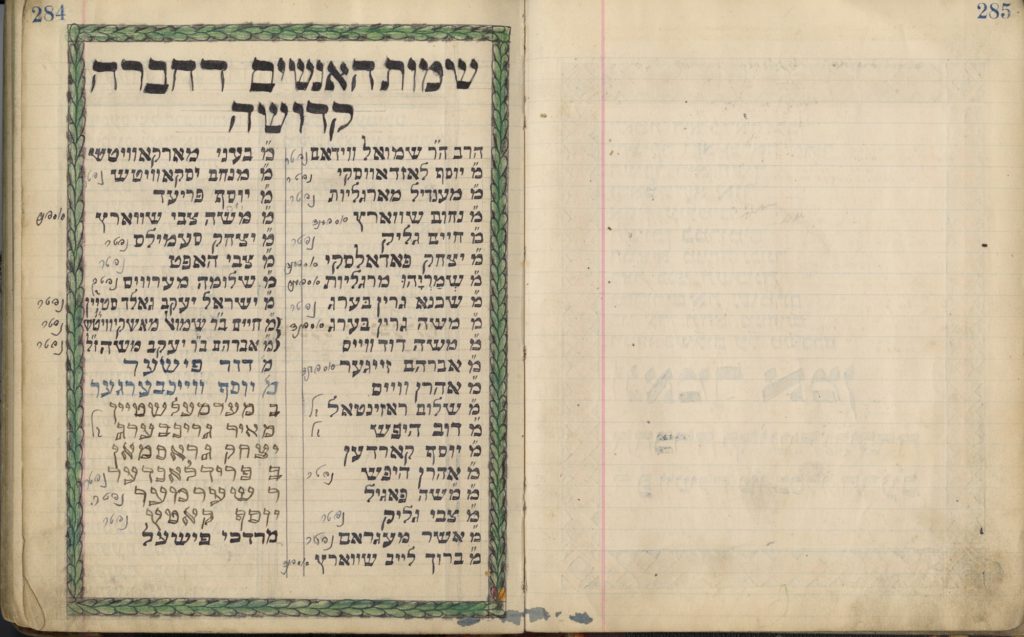 284
285
שימות האנשים דחברה
קדושה
הרב ה״ר שמואל ווידאם נפטר
מ׳ יוסף לאזדאווסקי נפטר
מ׳ מענדיל מארגליות נפטר
מ׳ נחום שווארץ
מ׳ חיים גליק נפטר
מ׳ יצחק פאדאלסקי
מ׳ שמריהו מרגליות
מ׳ שכנא גרין בערג נפטר
מ׳ משה גרין בערג
מ׳ משה דוד ווייס
מ׳ אברהם זייגער
מ׳ אהרן ווייס
מ׳ שלום ראזינטאל
מ׳ דוב היפש
מ׳ יוסף קארדען
מ׳ אהרן היפש נפטר
מ׳ משה פאגיל
מ׳ צבי גליק נפטר
מ׳ אשר מעגראם נפטר
מ׳ ברוך לייב שווארץ
מ׳ בעני מארקאוויטש
מ׳ מנחם יסקאוויטש
מ׳ יוסף פריעד
מ׳ משה צבי שווארץ
מ׳ יצחק סעמילס נפטר
מ׳ צבי האפט נפטר
מ׳ שלומה מערוויס נפטר
מ׳ ישראל יעקב גאלדסטיין נפטר
מ׳ חיים ב״ר שמואל מאשקיוויטש נפטר
מ׳ אברהם ב״ר יעקב משה ז״ל נפטר
מ דוד פישער
מ׳ יוסף ווייכבערגער
ב מערמעלשטיין
מאיר גרינבערג
יצחק גראסמאן
ב פרידלאנדער נפטר
ר שעירמער נפטר
יוסף קאטץ נפטר
מרדכי פישעל